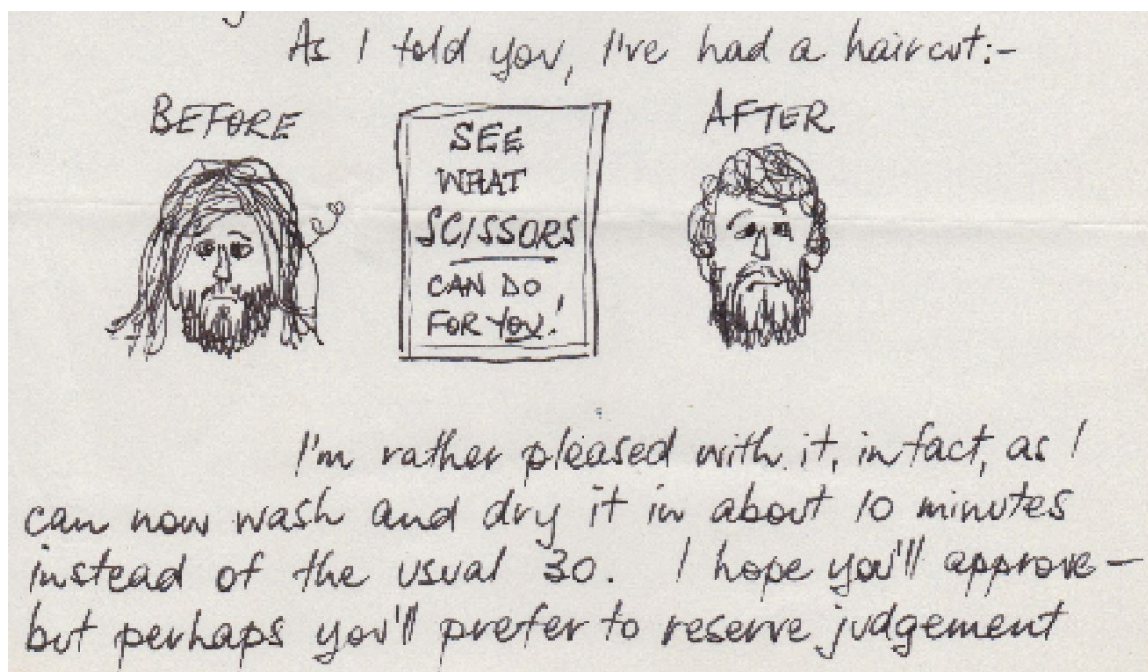 As I told you, I've had a haircut:-
BEFORE
SEE
WHAT
SCISSORS
CAN DO
FOR YOU!
AFTER
I'm rather pleased with it, in fact, as I
can now wash and dry it in about 10 minutes
instead of the usual 30. I hope you'll approve —
but perhaps you'll prefer to reserve judgement